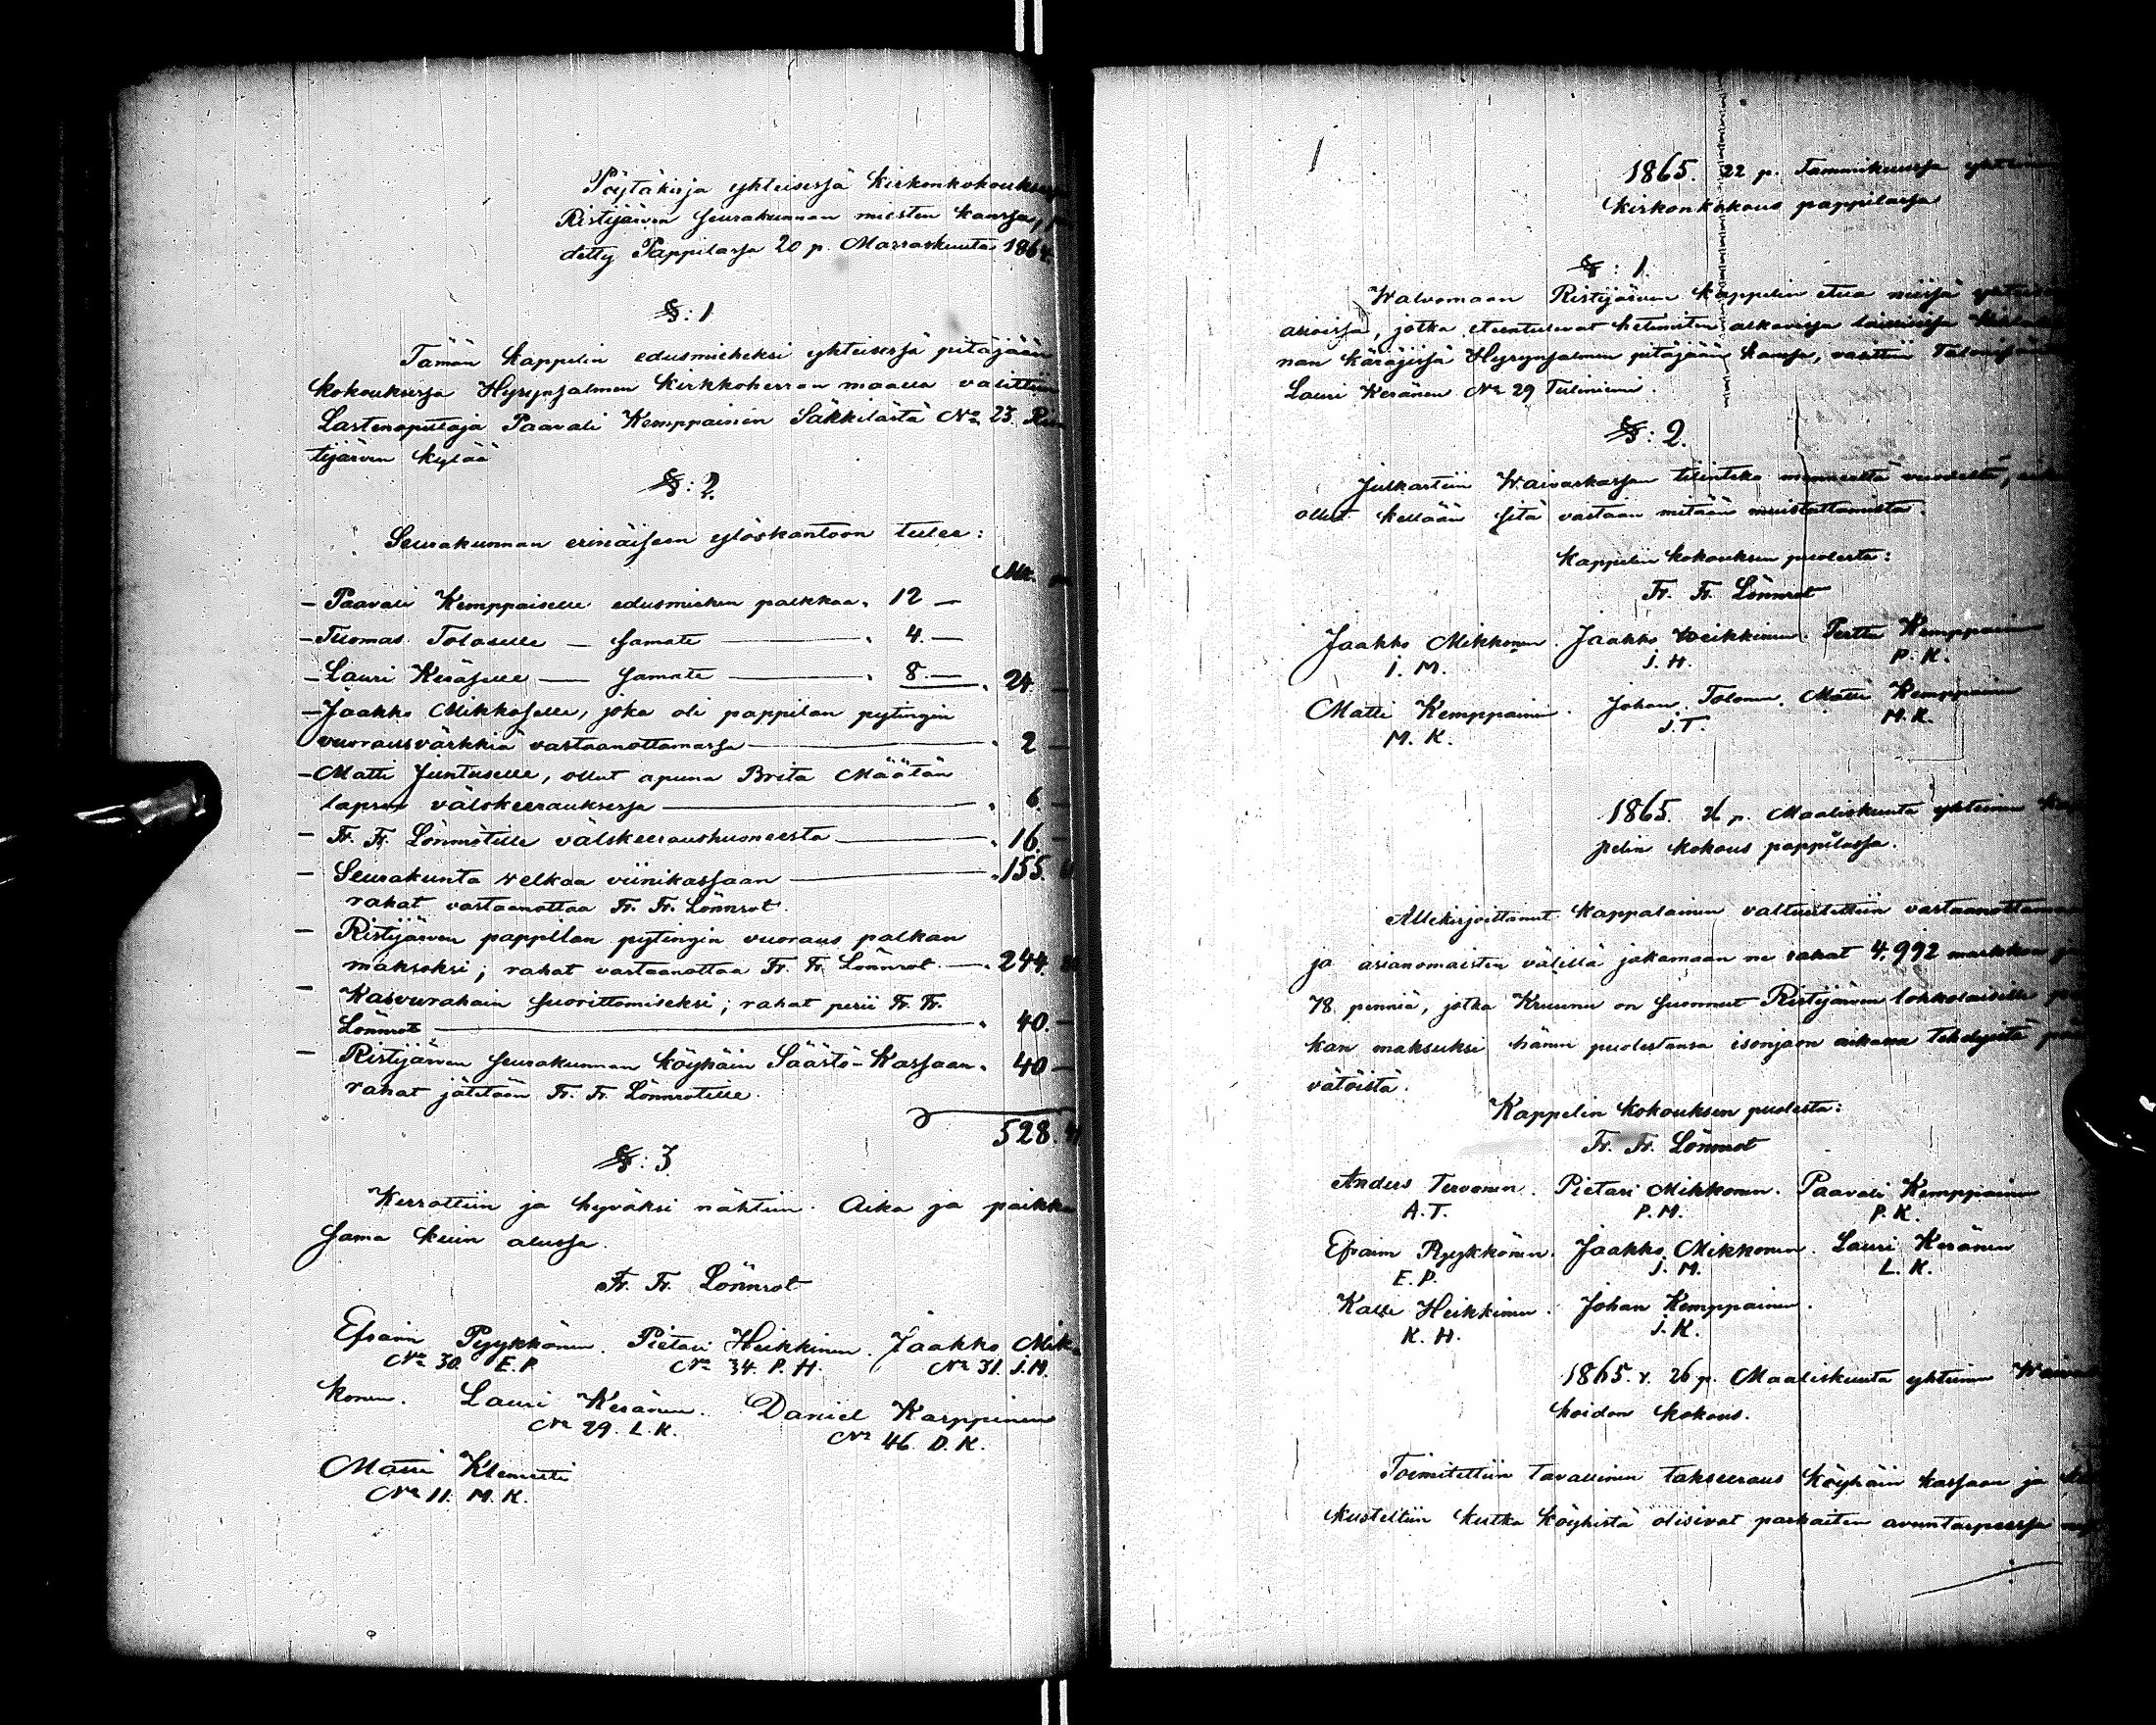 Pöytäkirja yhteisessä kirkonkokouksessa
Ristijärven seurakunnan miesten kanssa,
detty Pappilassa 20 p. Marraskuuta 1864.
§: 1
Tämän kappelin edusmieheksi yhteisessä pitäjään
kokouksessa Hyrynsalmen Kirkkoherran maalla valittiin
Lastenopettaja Paavali Kemppainen Säkkilästä No 23. Ris
tijärven kylää
§: 2.
Seurakunnan erinäiseen ylöskantoon tulee:
Mk.
– Paavali Kemppaiselle edusmiehen palkkaa „ 12 –
– Tuomas Tolaselle – samate – „ 4. –
– Lauri Keräselle – samate – „ 8. – „ 24 –
– Jaakko Mikkoselle, joka oli pappilan pytingin
vuorausvärkkiä vastaanottamassa – „ 2 –
– Matti Juntuselle, ollut apuna Brita Määtän
lapsen välskeerauksessa – „ 6. –
– Fr. Fr. Lönnrotille välskeeraushuoneesta – „ 16. –
– Seurakunta velkaa viinikassaan – „ 155.
rahat vastaanottaa Fr. Fr. Lönnrot.
– Ristijärven pappilan pytingin vuoraus palkan
maksoksi; rahat vastaanottaa Fr. Fr. Lönnrot. – „ 244.
– Kasvurahain suorittamiseksi; rahat perii Fr. Fr.
Lönnrot – „ 40. –
– Ristijärven seurakunnan köyhäin Säästö-Kassaan „ 40 –
rahat jätetään Fr. Fr. Lönnrotille.
528.
§: 3
Kerrottiin ja hyväksi nähtiin. Aika ja paikka
sama kuin alussa.
Fr. Fr. Lönnrot
Efraim Pyykkönen. Pietari Heikkinen. Jaakko Mik-
No 30. E. P. No 34. P. H. No 31. J. M.
konen. Lauri Keränen. Daniel Karppinen
No 29. L. K. No 46. D. K.
Matti Klemetti
No 11. M. K.
1865. 22 p. Tammikuussa
kirkonkokous pappilassa
§: 1.
Walvomaan Ristijärven kappelin etua niissä
asioissa, jotka eteentulevat hetimiten alkavissa laillisissa
nan käräjissä Hyrynsalmen pitäjään kanssa, valittiin Talonisäntä
Lauri Keränen No 29 Tiiliniemi.
§: 2.
Julkastiin Waivaskassan tilinteko menneeltä vuodelta,
ollut kellään sitä vastaan mitään muistuttamista.
Kappelin kokouksen puolesta:
Fr. Fr. Lönnrot
Jaakko Mikkonen. Jaakko Heikkinen. Pertta Kemppainen
J. M. J. H. P. K.
Matti Kemppainen. Johan Tolonen. Matti Kemppainen
M. K. J. T. M. K.
1865. 26 p. Maaliskuuta yhteinen Kap
pelin kokous pappilassa.
Allekirjoittanut kappalainen valtuutettiin vastaanottamaan
ja asianomaisten välillä jakamaan ne rahat 4,992 markkaa
78 penniä, jotka Kruunu on suonnut Ristijärven lohkolaisille
kan maksuksi hänen puolestansa isonjaon aikana tehdyistä päi
vätöistä.
Kappelin kokouksen puolesta:
Fr. Fr. Lönnrot
Anders Tervonen. Pietari Mikkonen. Paavali Kemppainen
A. T. P. M. P. K.
Efraim Pyykkönen. Jaakko Mikkonen. Lauri Keränen
E. P. J. M. L. K.
Kalle Heikkinen. Johan Kemppainen.
K. H. J. K.
1865. v. 26 p. Maaliskuuta yhteinen Waivais
hoidon kokous.
Toimitettiin tavallinen takseeraus köyhäin kassaan ja
kusteltiin kutka köyhistä olisivat parhaiten avuntarpeessa